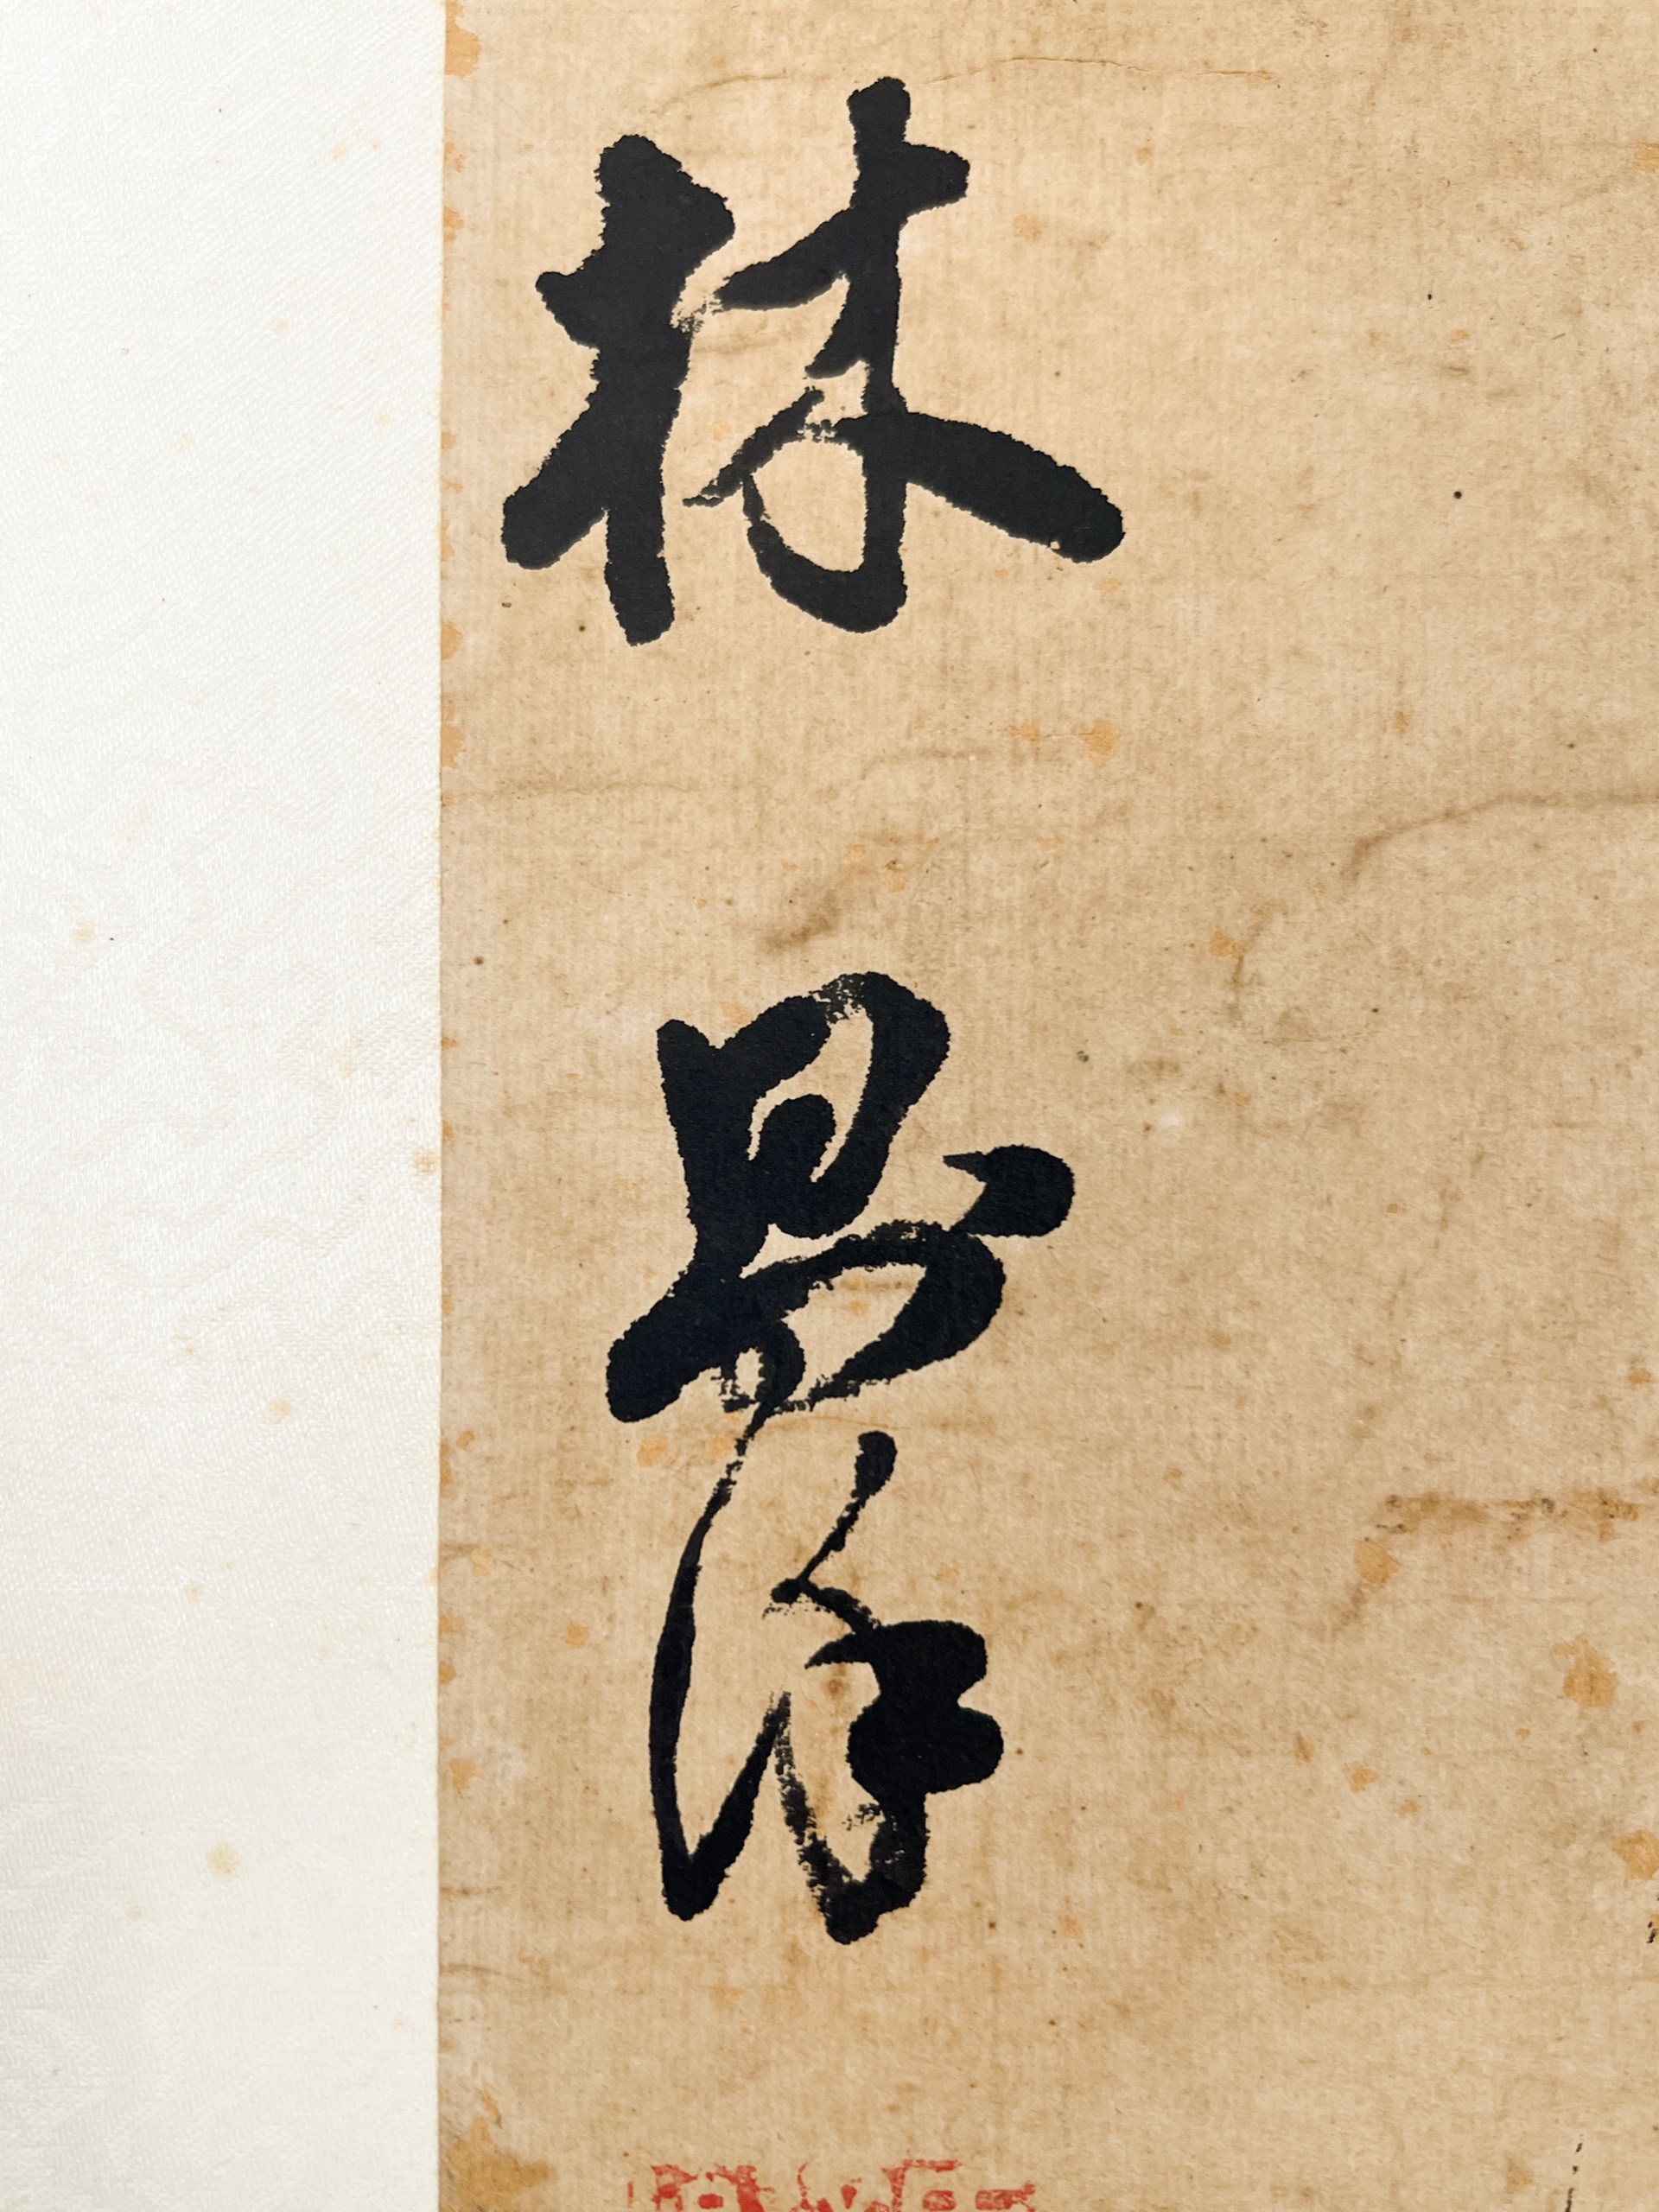 林則徐